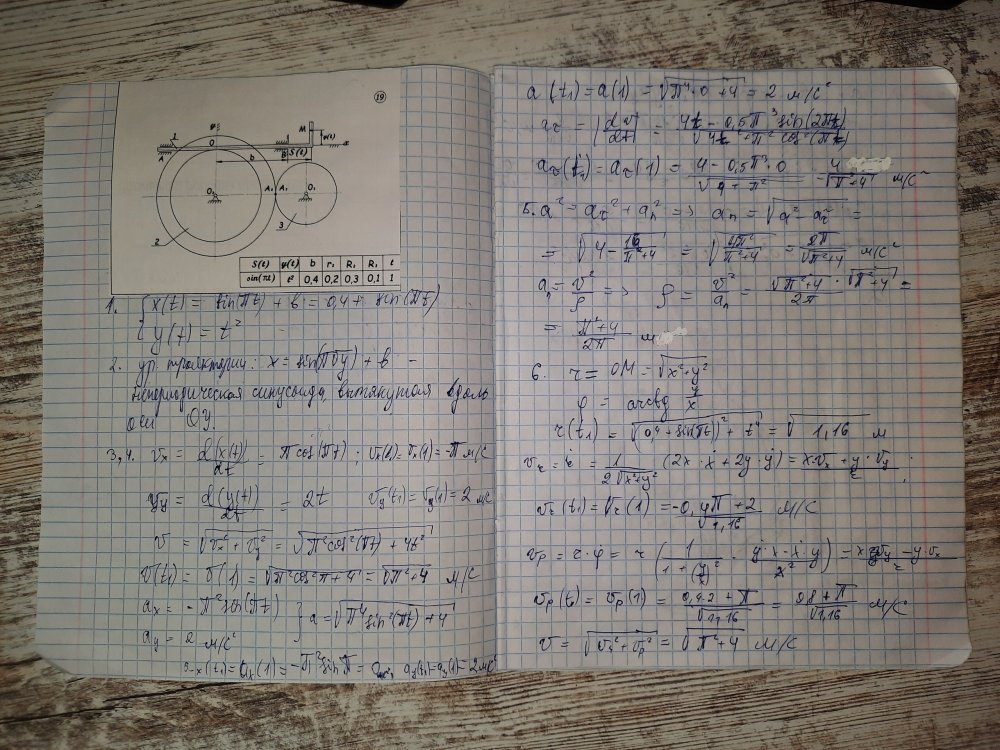 19
y
1
M
O
1
y(t)
x
A
b
B
S(t)
O₂
A₂
A₃
O₃
2
3
S(t) y(t) b r₂ R₂ R₃ t
sin(πt) t² 0,4 0,2 0,3 0,1 1
1. { x(t) = sin(πt) + в = 0,4 + sin(πt)
{ y(t) = t²
2. ур. траектории: x = sin(π√y) + в –
непериодическая синусоида, вытянутая вдоль
оси OY.
3,4. vx = d(x(t))/dt = π cos(πt); vx(t₁) = vx(1) = -π м/с
vy = d(y(t))/dt = 2t vy(t₁) = vy(1) = 2 м/с
v = √(vx² + vy²) = √(π²cos²(πt) + 4t²)
v(t₁) = v(1) = √(π²cos²π + 4) = √(π²+4) м/с
ax = -π² sin(πt) } a = √(π⁴ sin²(πt) + 4)
ay = 2 м/с²
ax(t₁) = ax(1) = -π² sin π = ay(t₁) = ay(1) = 2 м/с²
a(t₁) = a(1) = √(π⁴·0 + 4) = 2 м/с²
aτ = |dv/dt| = (4t - 0,5π³ sin(2πt))/√(4t² + π² cos²(πt))
aτ(t₁) = aτ(1) = (4 - 0,5π³·0)/√(4 + π²) = 4/√(π²+4) м/с²
5. a² = aτ² + an² => an = √(a² - aτ²) =
= √(4 - 16/(π²+4)) = √(4π²/(π²+4)) = 2π/√(π²+4) м/с²
an = v²/ρ => ρ = v²/an = √(π²+4) · √(π²+4) / 2π =
= (π²+4)/2π м
6. r = OM = √(x²+y²)
φ = arctg y/x
r(t₁) = √((0,4 + sin(πt))² + t⁴) = √1,16 м
vr = ṙ = 1/(2√(x²+y²)) (2x·ẋ + 2y·ẏ) = (x·vx + y·vy)/r;
vr(t₁) = vr(1) = (-0,4π + 2)/√1,16 м/с
vp = r·φ̇ = r (1/(1+(y/x)²) · (ẏ·x - ẋ·y)/x²) = (x·vy - y·vx)/r
vp(t₁) = vp(1) = (0,4·2 + π)/√1,16 = (0,8 + π)/√1,16 м/с
v = √(vr² + vp²) = √(π²+4) м/с